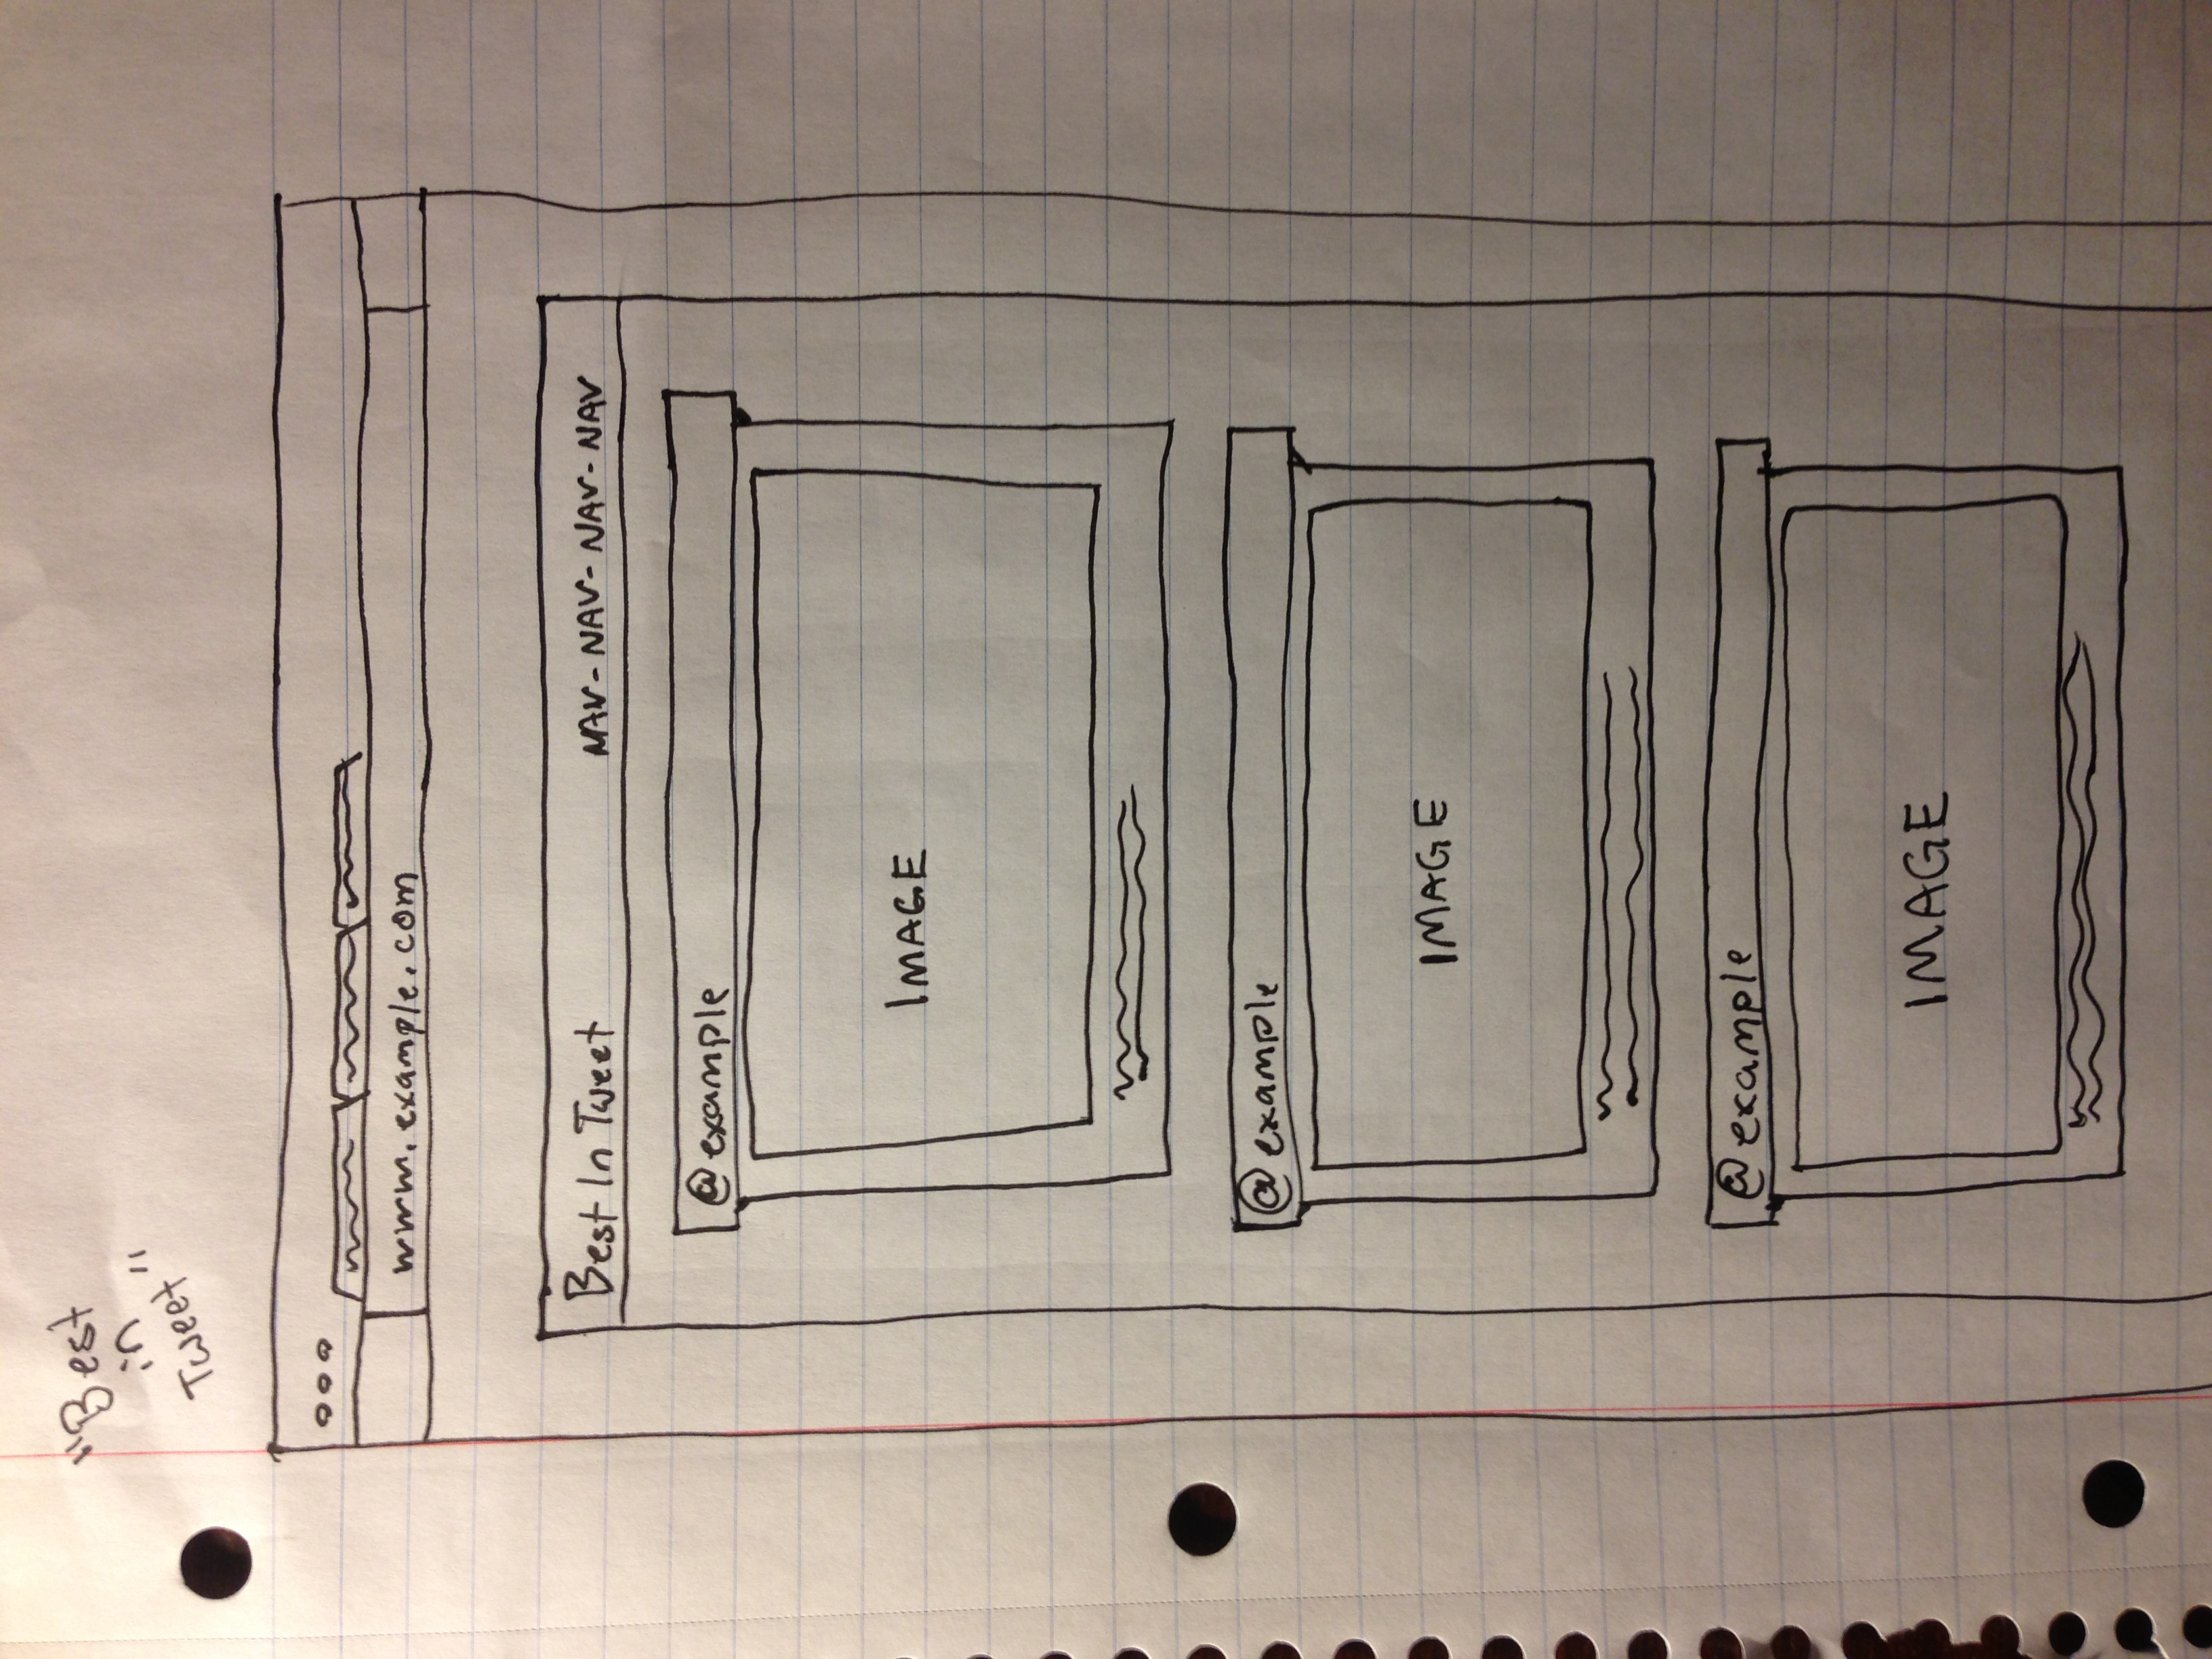 "Best
in
Tweet"
www.example.com
Best In Tweet NAV - NAV - NAV - NAV
@example
IMAGE
@example
IMAGE
@example
IMAGE